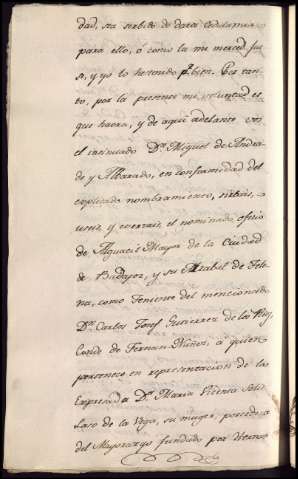 dad, sea servido de daros
para ello, ó como la mi merced fue
se, y yo lo he tenido p.r bien. Por tan
to, por la presente mi voluntad es,
que haora, y de aqui adelante vos
el insinuado Dn. Miguel de Andra
de y Albarado, en conformidad del
explicado nombramiento, sirbais,
useis y exerzais, el nominado oficio
de Alguacil Mayor de la Ciudad
de Badajoz, y su
como Teniente del mencionado
Dn. Carlos Josef Gutierrez de los Rios,
Conde de Fernan Nuñez, á quien
pertenece en representacion de la
Expresada Da. Maria Vicenta Solis
Laso de la Vega, su muger, poseedora
del Mayorazgo fundado por